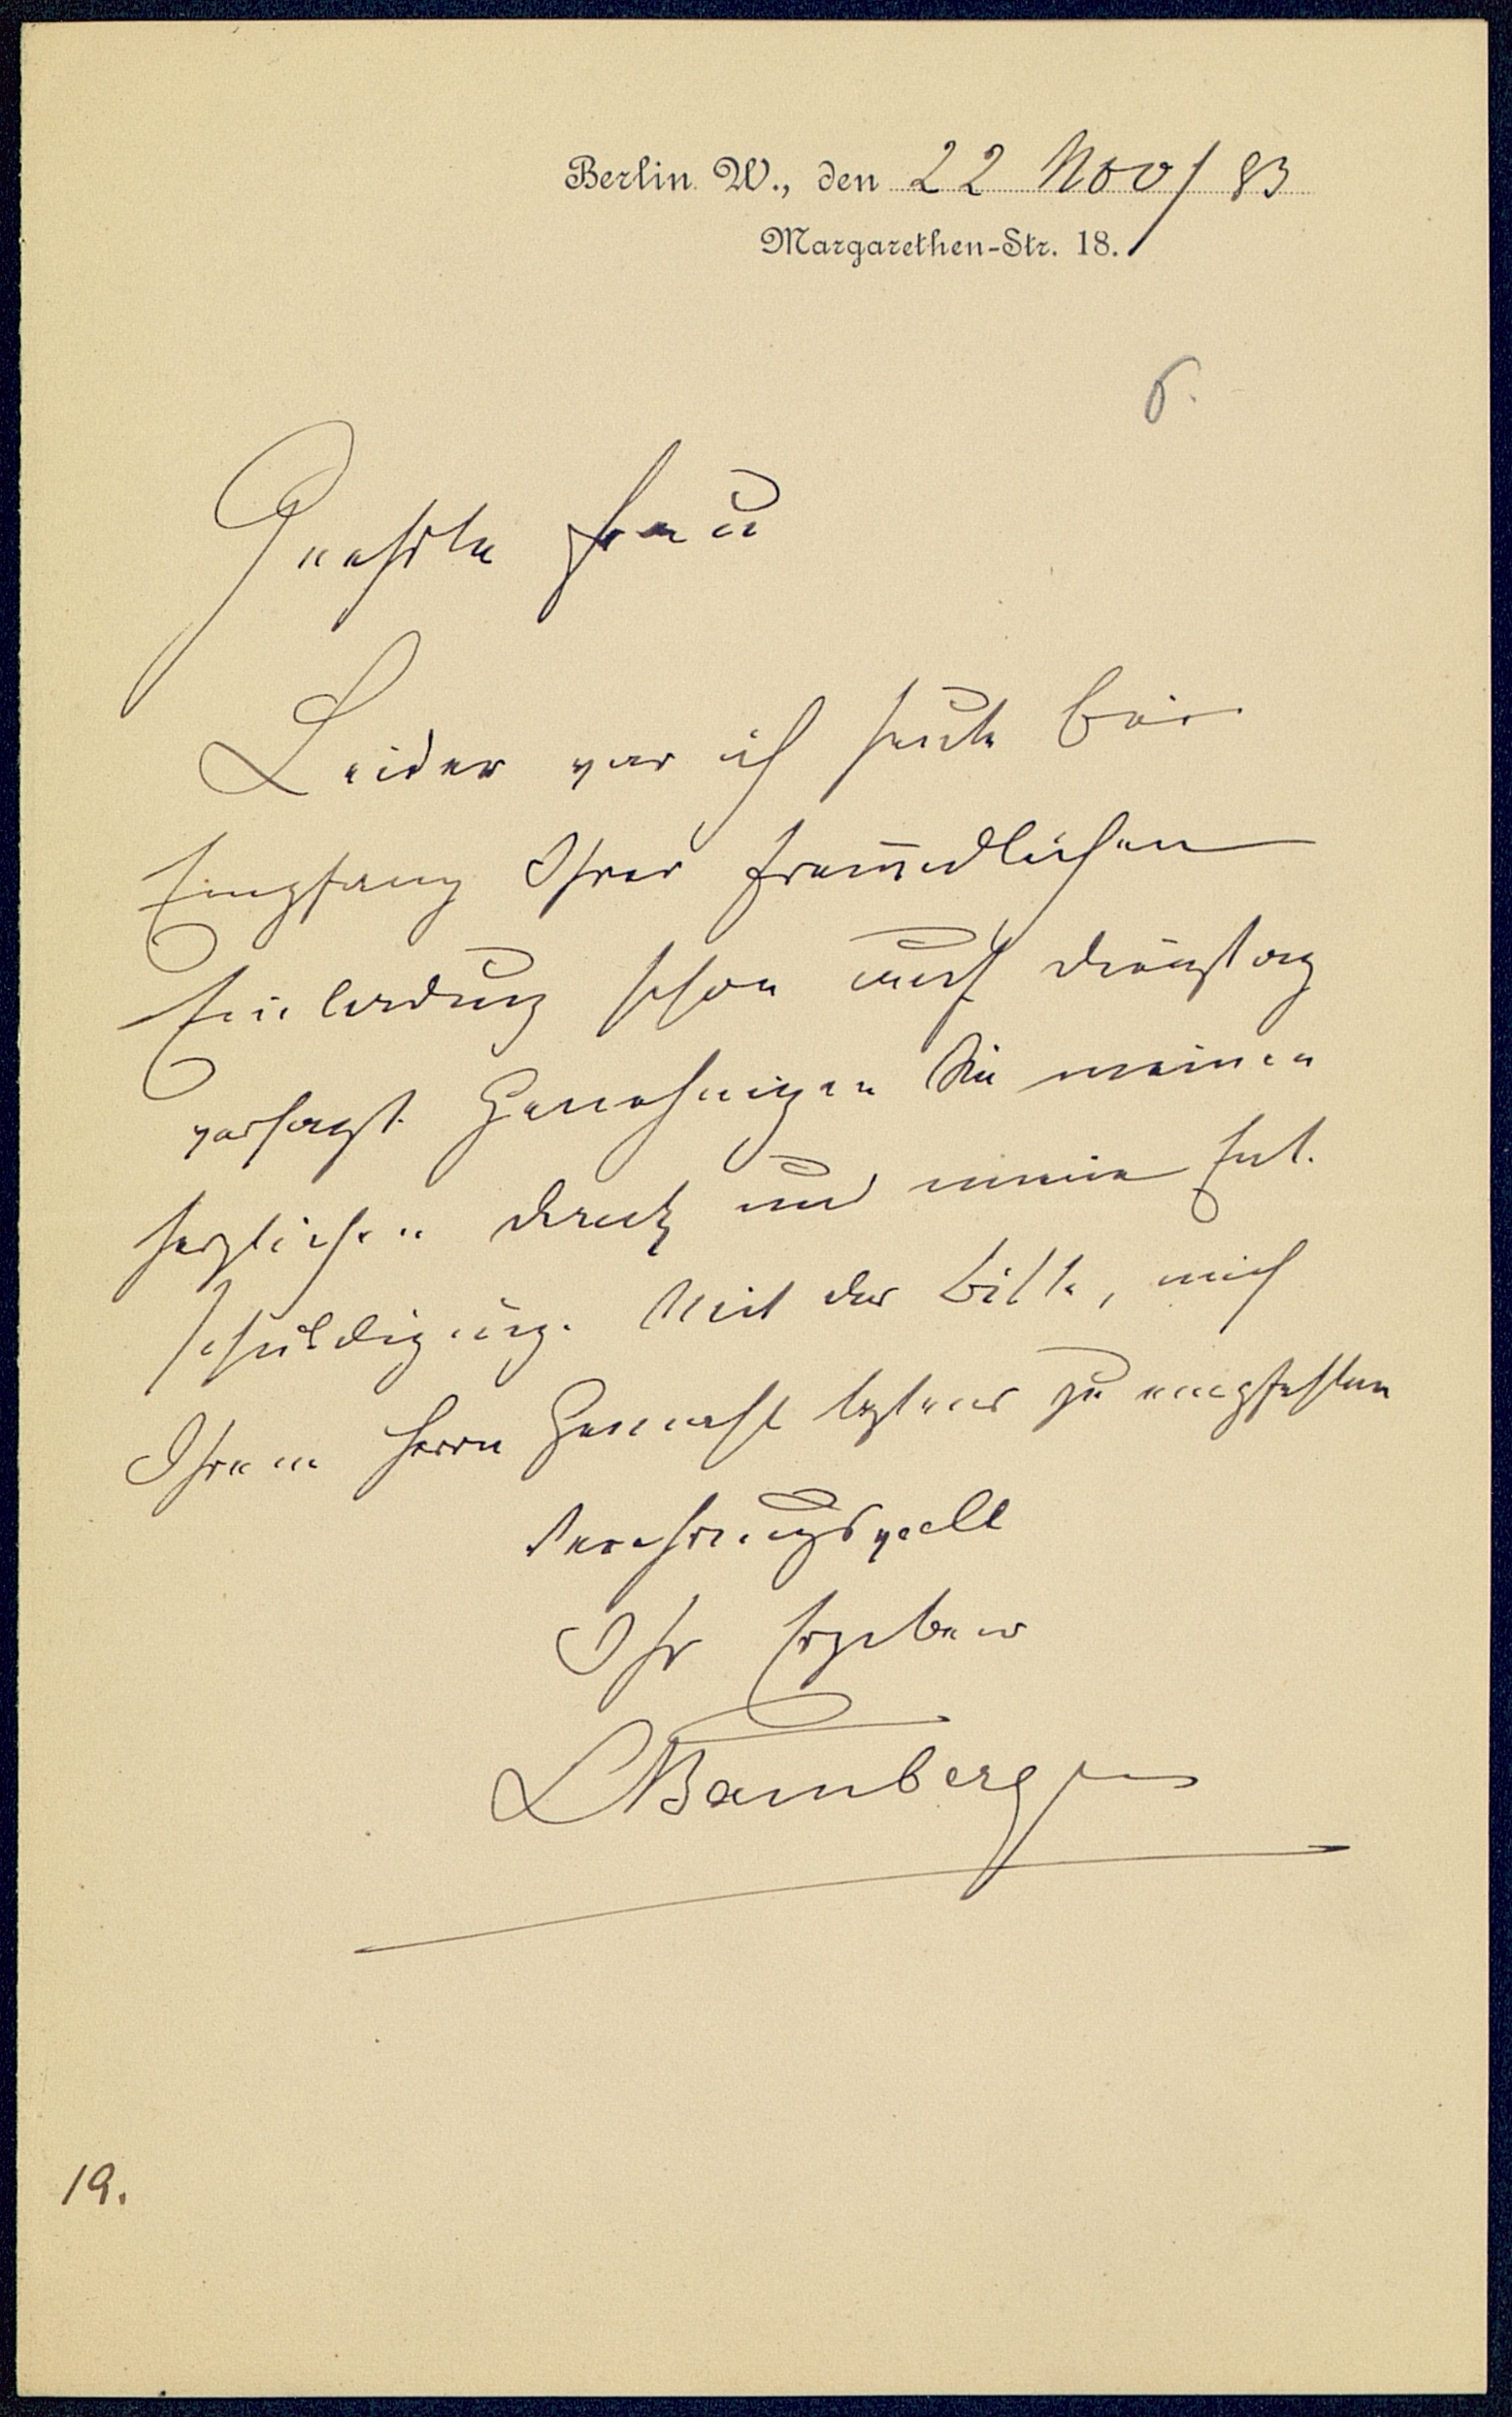 Berlin W., den 22 Nov/ 83
Margarethen-Str. 18.
6.
Geehrte Frau
Leider war ich heute bei
Empfang Ihrer freundlichen
Einladung schon auf Dienstag
versagt. Genehmigen Sie meinen
herzlichen Dank und meine Ent-
schuldigung. Mit der Bitte, mich
Ihrem Herrn Gemahl bestens zu empfehlen
Verehrungsvoll
Ihr Ergebener
LBamberger
19.